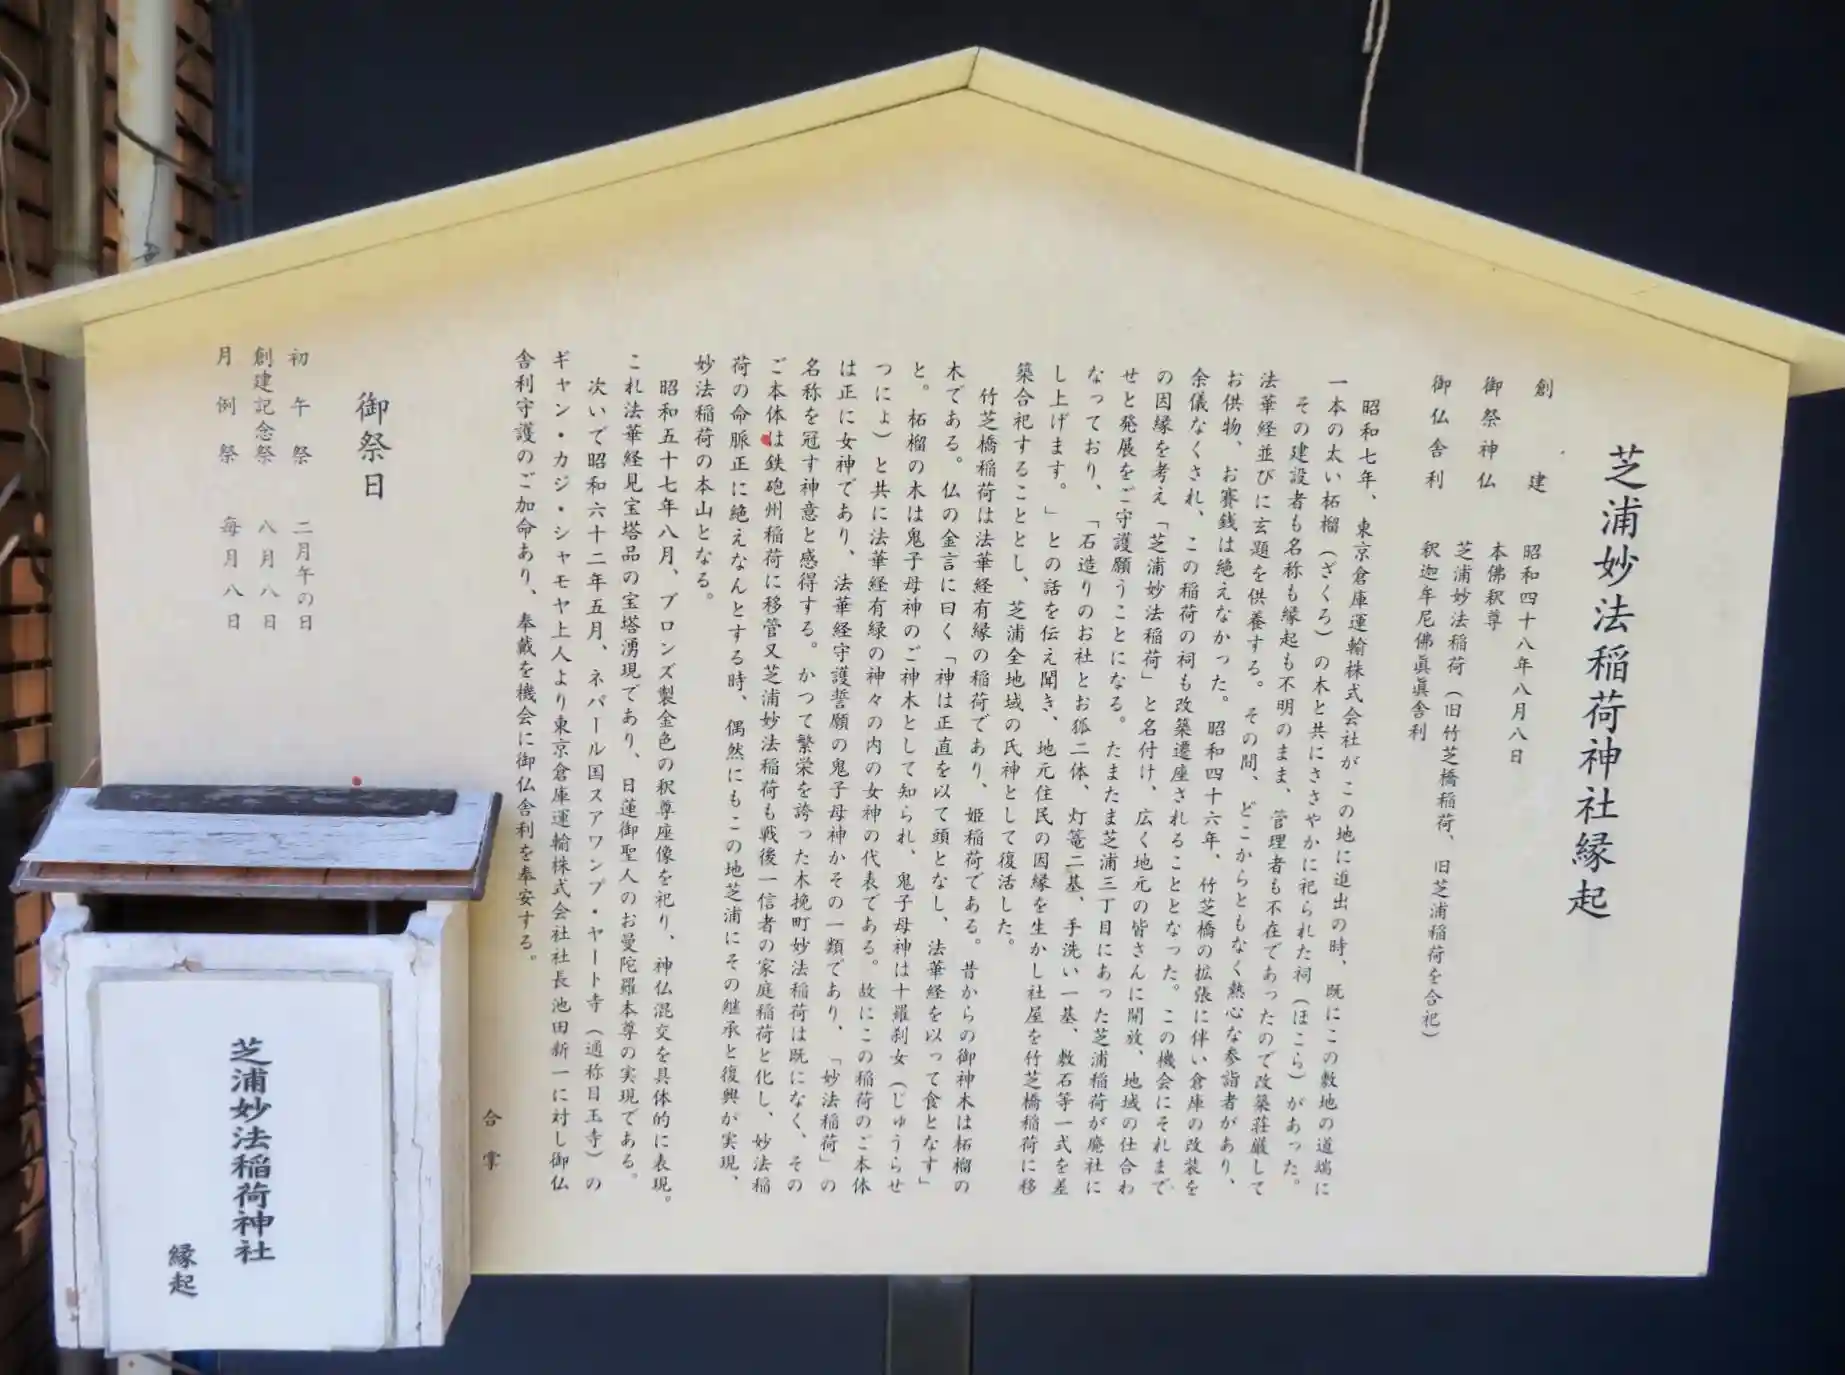 芝浦妙法稲荷神社縁起
創建 昭和四十八年八月八日
御祭神仏 本佛釈尊
芝浦妙法稲荷（旧竹芝橋稲荷、旧芝浦稲荷を合祀）
御仏舎利 釈迦牟尼佛眞眞舎利
昭和七年、東京倉庫運輸株式会社がこの地に進出の時、既にこの敷地の道端に
一本の太い柘榴（ざくろ）の木と共にささやかに祀られた祠（ほこら）があった。
その建設者も名称も縁起も不明のまま、管理者も不在であったので改築荘厳して
法華経並びに玄題を供養する。その間、どこからともなく熱心な参詣者があり、
お供物、お賽銭は絶えなかった。昭和四十六年、竹芝橋の拡張に伴い倉庫の改装を
余儀なくされ、この稲荷の祠も改築遷座されることとなった。この機会にそれまで
の因縁を考え「芝浦妙法稲荷」と名付け、広く地元の皆さんに開放、地域の仕合わ
せと発展をご守護願うことになる。たまたま芝浦三丁目にあった芝浦稲荷が廃社に
なっており、「石造りのお社とお狐二体、灯篭二基、手洗い一基、敷石等一式を差
し上げます。」との話を伝え聞き、地元住民の因縁を生かし社屋を竹芝橋稲荷に移
築合祀することとし、芝浦全地域の氏神として復活した。
竹芝橋稲荷は法華経有縁の稲荷であり、姫稲荷である。昔からの御神木は柘榴の
木である。仏の金言に曰く「神は正直を以て頭となし、法華経を以って食となす」
と。柘榴の木は鬼子母神のご神木として知られ、鬼子母神は十羅刹女（じゅうらせ
つにょ）と共に法華経有緑の神々の内の女神の代表である。故にこの稲荷のご本体
は正に女神であり、法華経守護誓願の鬼子母神かその一類であり、「妙法稲荷」の
名称を冠す神意と感得する。かつて繁栄を誇った木挽町妙法稲荷は既になく、その
ご本体は鉄砲州稲荷に移管又芝浦妙法稲荷も戦後一信者の家庭稲荷と化し、妙法稲
荷の命脈正に絶えなんとする時、偶然にもこの地芝浦にその継承と復興が実現、
妙法稲荷の本山となる。
昭和五十七年八月、ブロンズ製金色の釈尊座像を祀り、神仏混交を具体的に表現。
これ法華経見宝塔品の宝塔湧現であり、日蓮御聖人のお曼陀羅本尊の実現である。
次いで昭和六十二年五月、ネパール国スアワンプ・ヤート寺（通称目玉寺）の
ギャン・カジ・シャモヤ上人より東京倉庫運輸株式会社社長池田新一に対し御仏
舎利守護のご加命あり、奉戴を機会に御仏舎利を奉安する。
合掌
御祭日
初午祭 二月午の日
創建記念祭 八月八日
月例祭 毎月八日
芝浦妙法稲荷神社
縁起